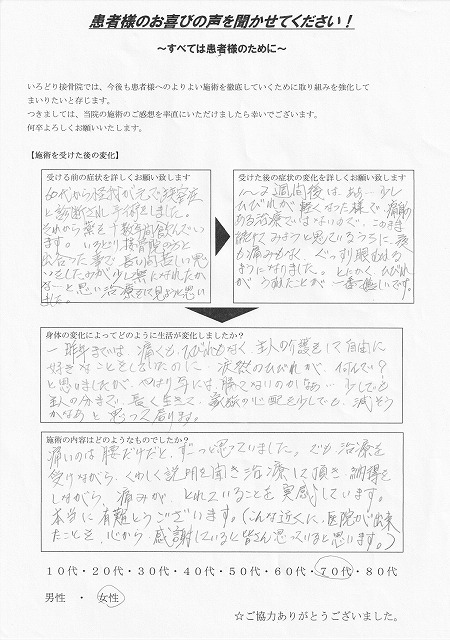 患者様のお喜びの声を聞かせてください！
～すべては患者様のために～
いろどり接骨院では、今後も患者様へのよりよい施術を徹底していくために取り組みを強化して
まいりたいと存じます。
つきましては、当院の施術のご感想を率直にいただけましたら幸いでございます。
何卒よろしくお願いいたします。
【施術を受けた後の変化】
受ける前の症状を詳しくお願い致します
60代から怪我が元で狭窄症
と診断され手術をしました。
それから薬を十数年飲んでい
ます。いろどり接骨院さんと
出合った事で長い間苦しい思
いをしたのが少し楽になれたか
な…と思い治療をして見ようと思い
ました。
受けた後の症状の変化を詳しくお願い致します
1～2週間後は、あら…少し
ひびれが軽くなった様で痛みの
ある治療ではないので、この時
続けてみようと思っているうちに夜
も痛みもなくぐっすり眠れる
ようになりました。とにかくひびれ
がうすれたことが一番嬉しいです。
身体の変化によってどのように生活が変化しましたか？
一昨年までは、痛くもひびれもなく主人の介護をして自由に
好きなことをしていたのに、涙がのひびれが、何んで？
と思いましたが、やはり年には、勝てないのかなぁ…少しでも
主人の分まで、長く生きて、家族の心配を少しでも、減そう
かなぁと思って居ります。
施術の内容はどのようなものでしたか？
痛いのは腰だけだと、ずーっと思っていました。でも治療を
受けながら、くわしく説明を聞き治療して頂き、納得を
しながら、痛みが、とれていることを実感しています。
本当に有難とうございます。（こんな近くに、医院が出来
たことを、心から、感謝していると皆さん思っていると思います。）
10代・20代・30代・40代・50代・60代・70代・80代
男性　・　女性
☆ご協力ありがとうございました。